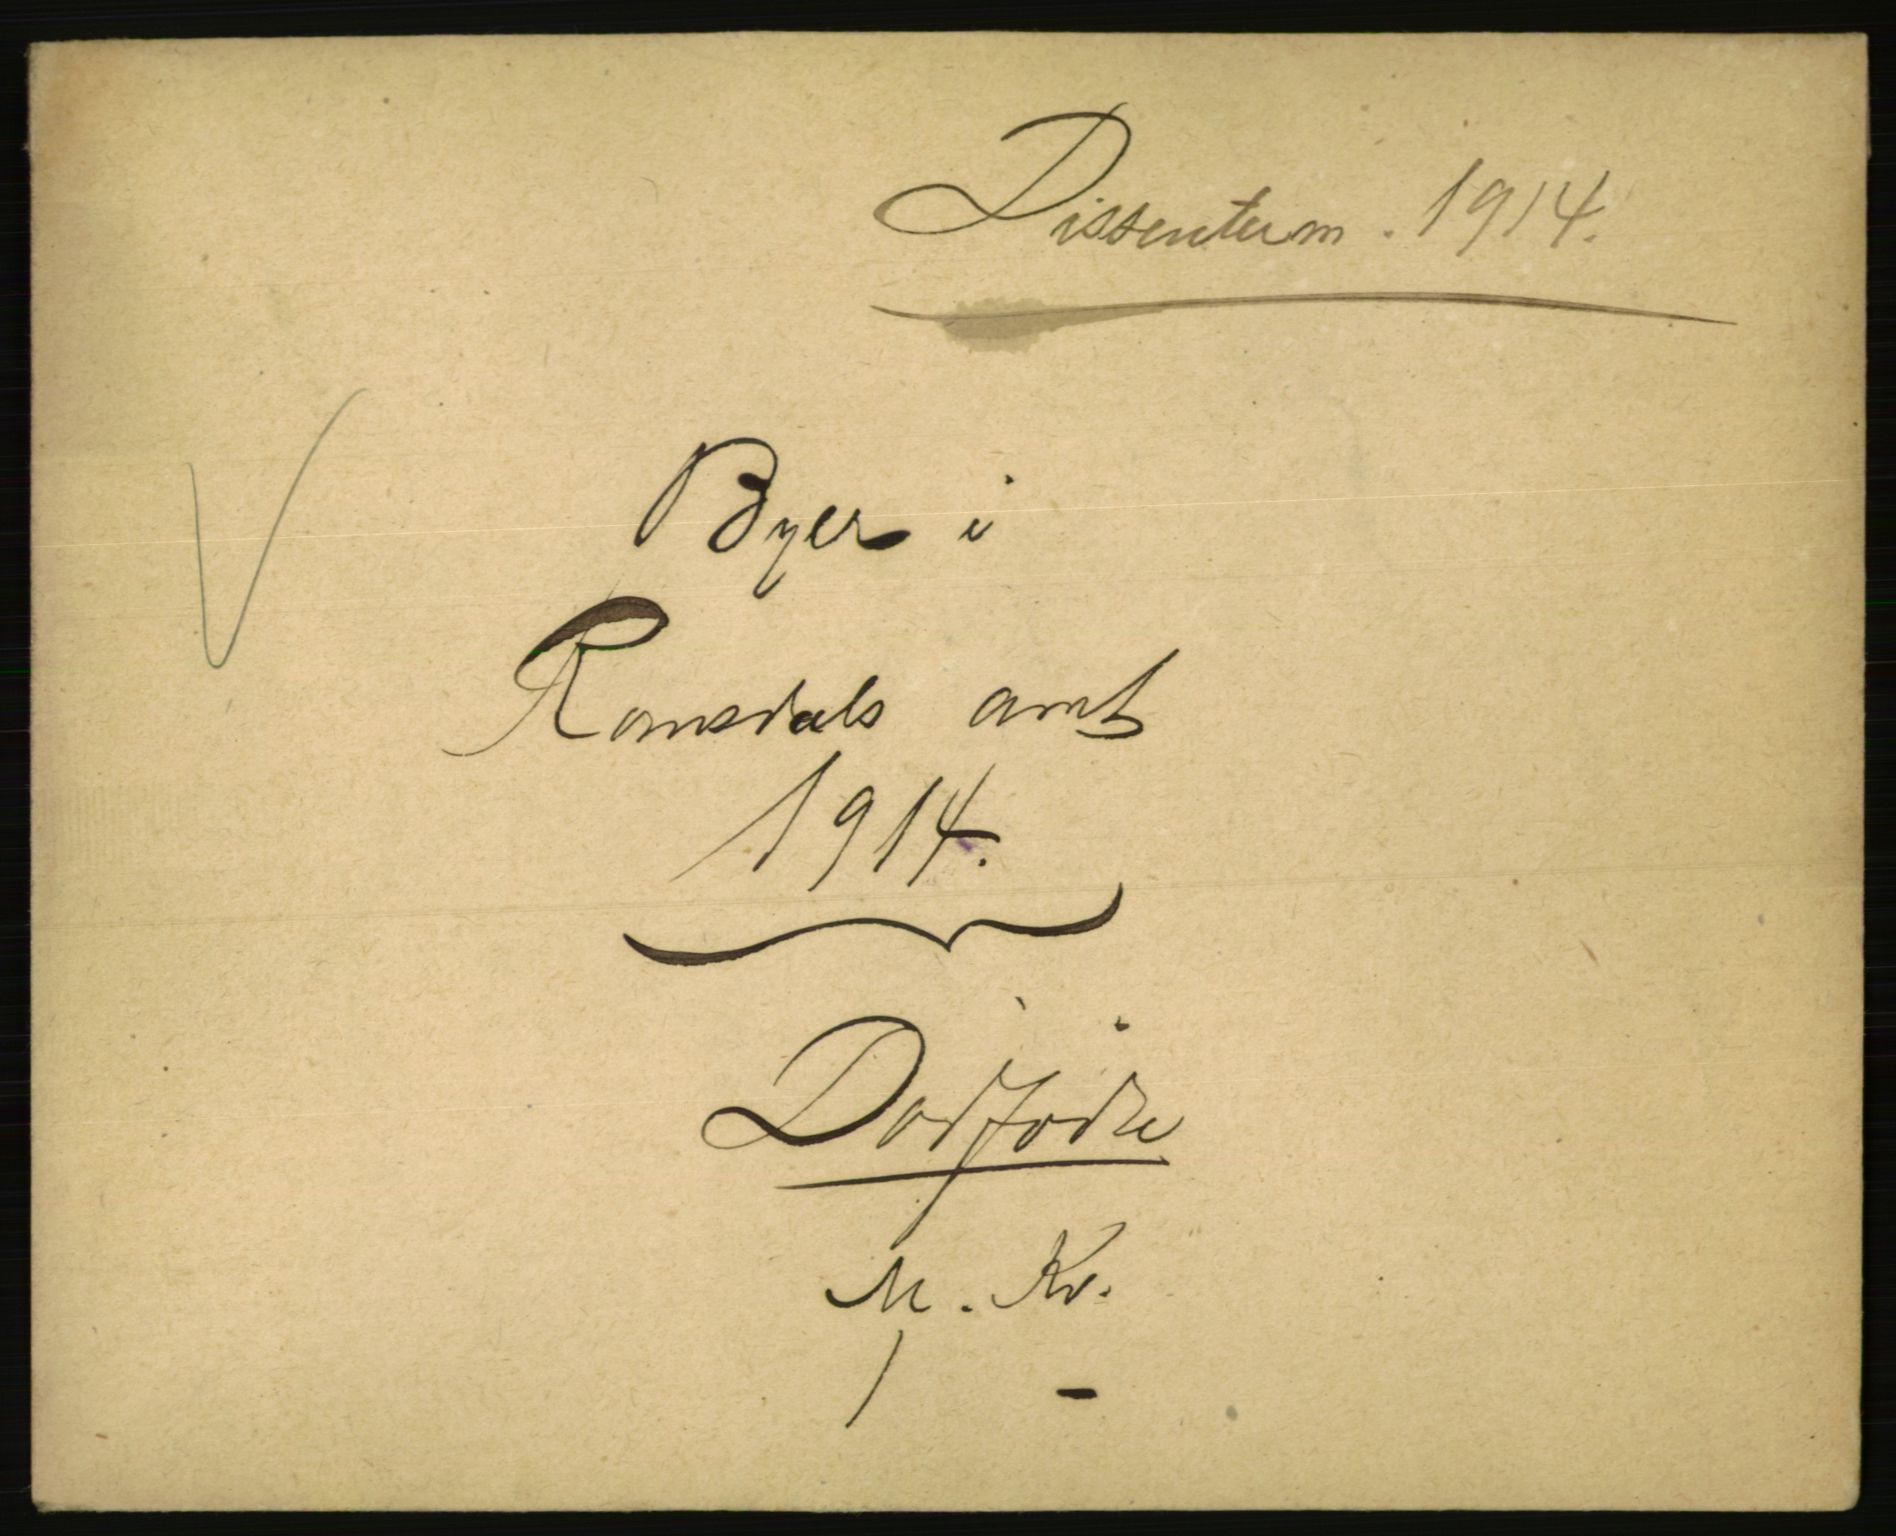 Dissenterm. 1914.
Byer i
Romsdals amt
1914.
Dødfødte
M. Kv.
1 -